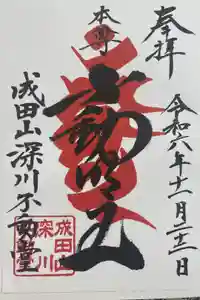 奉拝
令和六年十一月二十三日
本尊
不動明王
成田山深川不動堂
成田山
深川